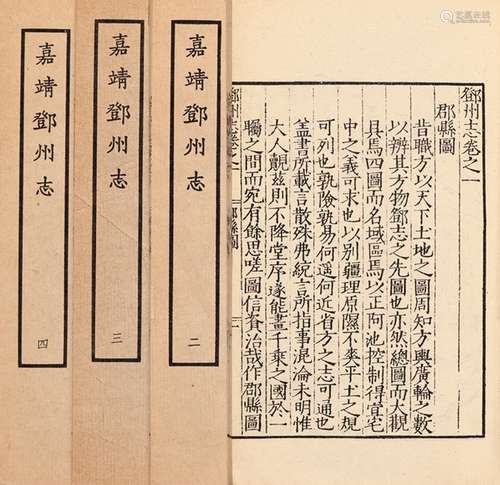 鄧州志卷之一
郡縣圖
昔職方以天下土地之圖周知方輿廣輪之數
以辨其方物鄧志之先圖也亦然總圖而大觀
具焉四圖而名域區焉以正阿池控制得宜宅
中之義可求也以别疆理原隰不爽平土之規
可列也孰險孰易何遥何近省方之志可通也
盖書所載言散殊弗統言所指事混淪未明惟
大人觀兹則不降堂序遂能晝千乗之國於一
矚之間而宛有餘思嗟圖信資治哉作郡縣圖
鄧州志卷之一
郡縣圖
一
嘉靖鄧州志
二
嘉靖鄧州志
三
嘉靖鄧州志
四